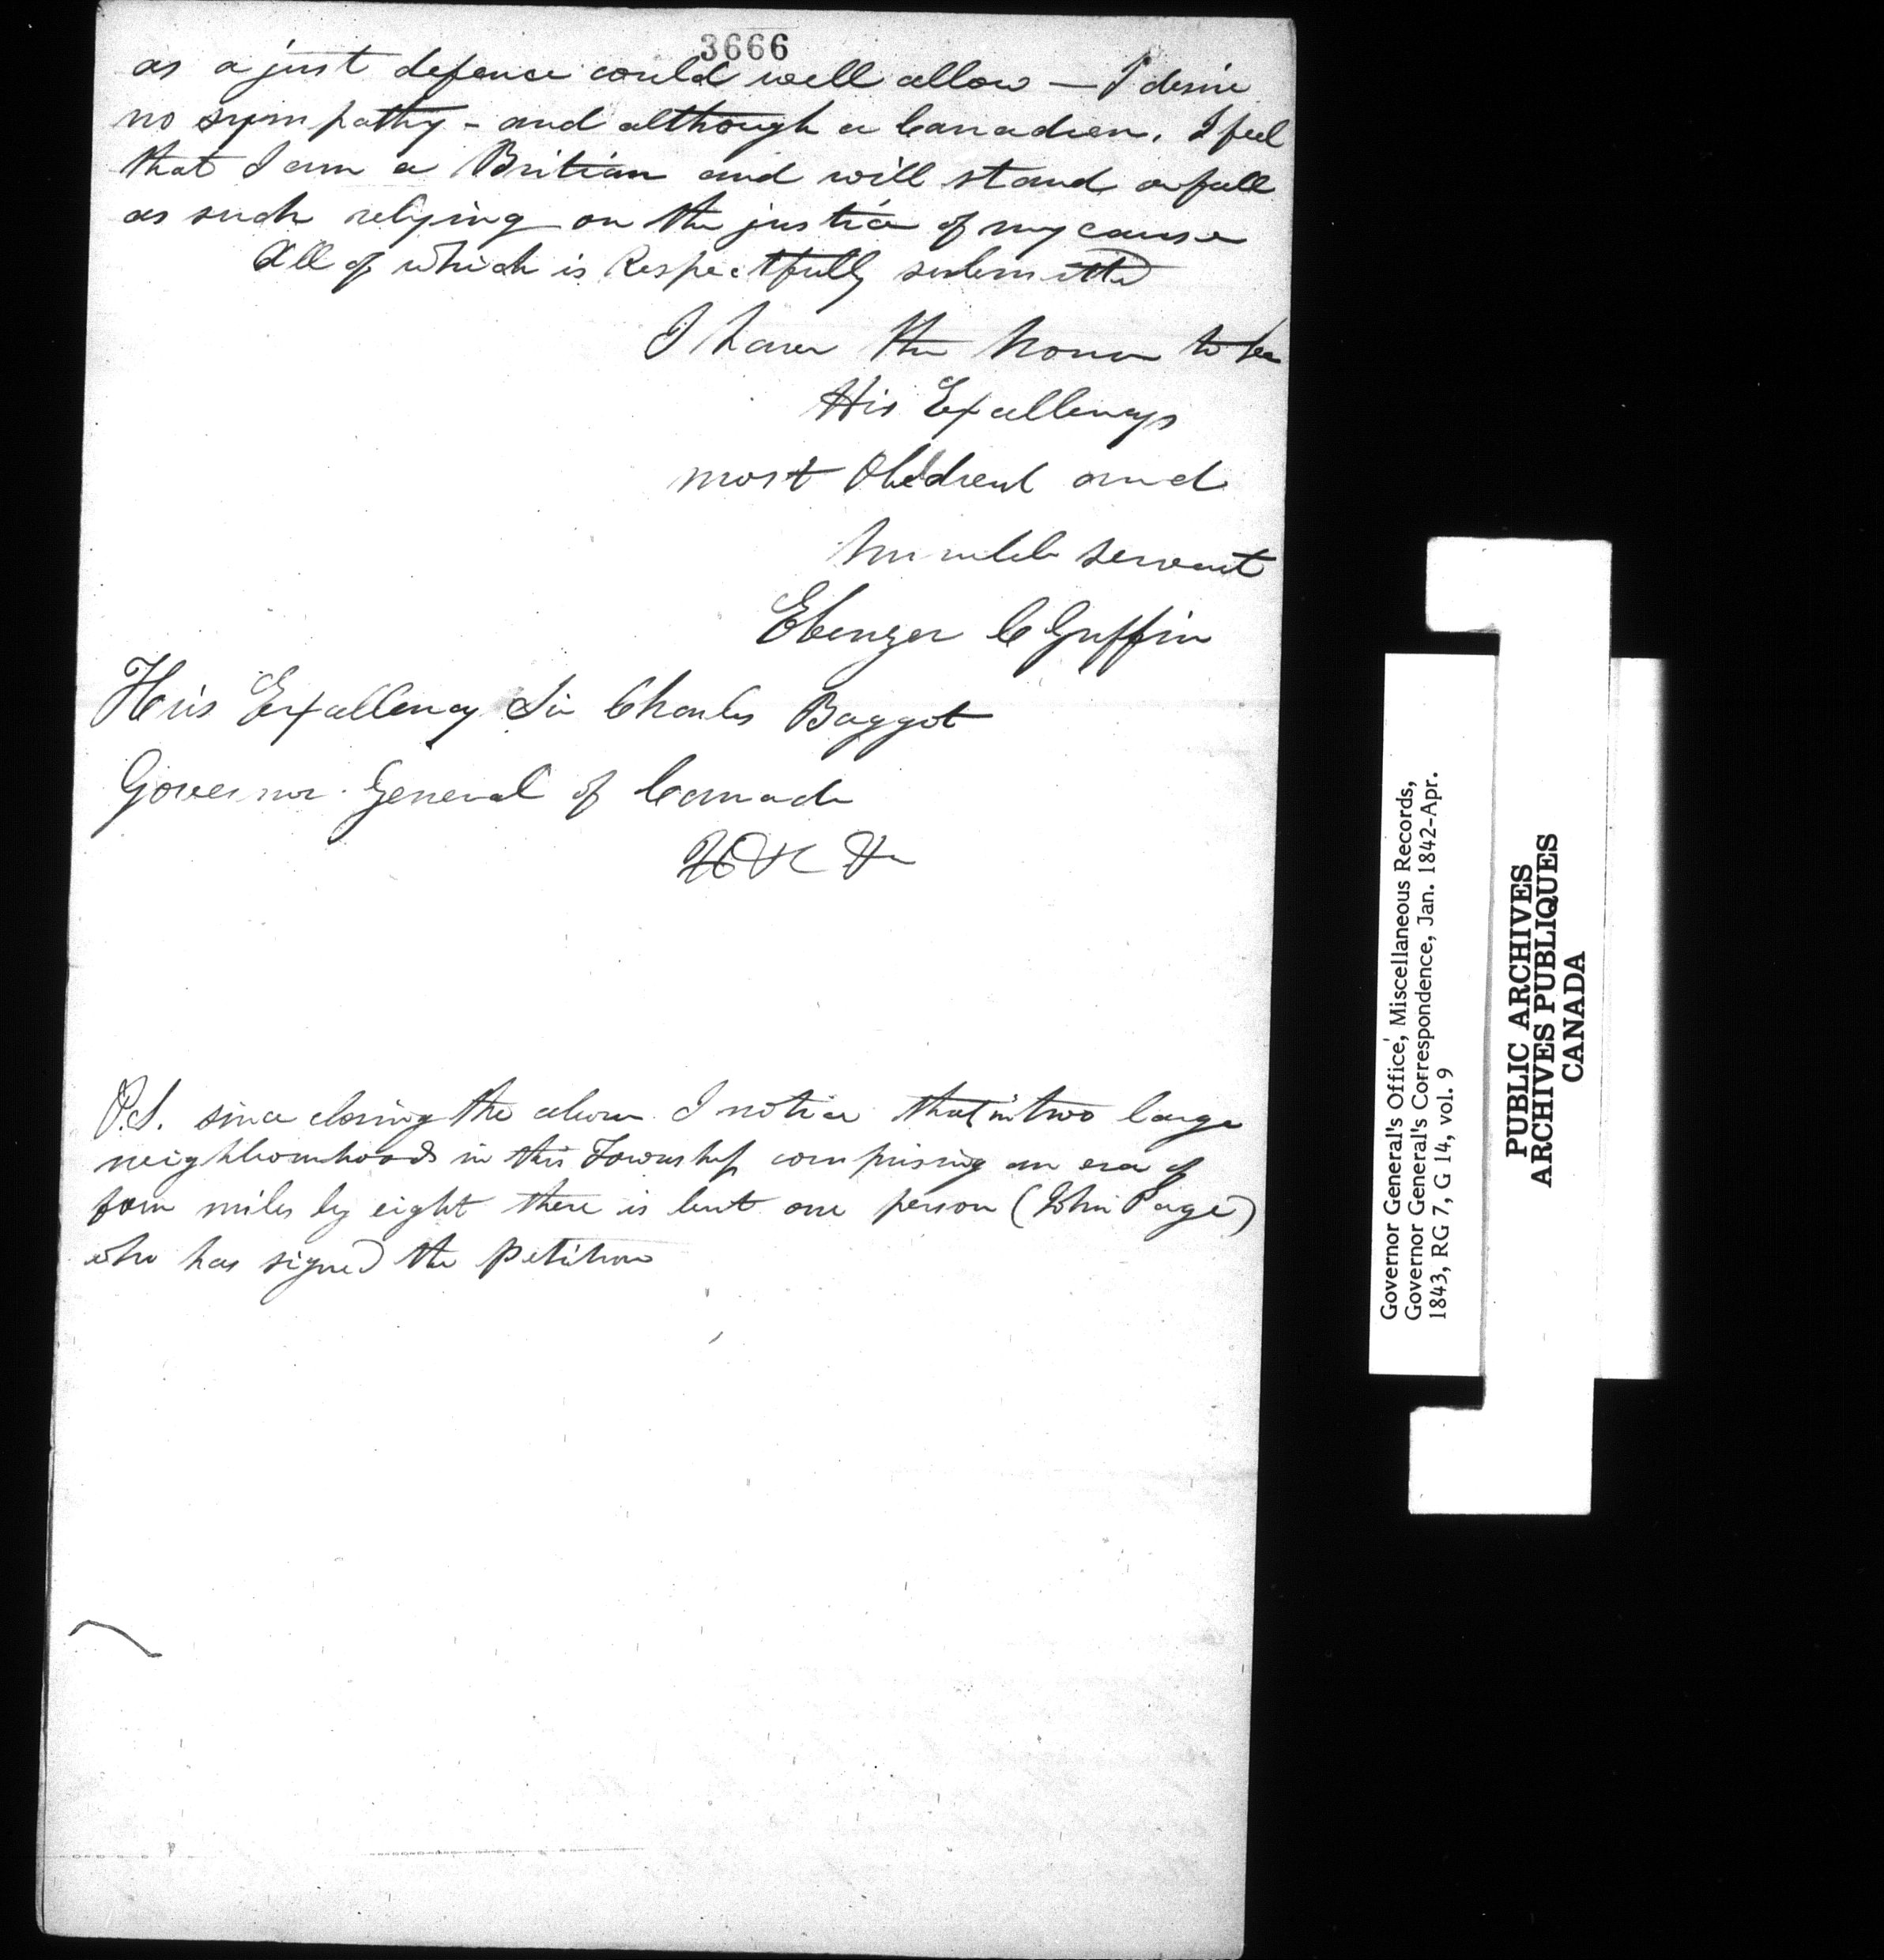 3666
as a just defence could well allow — I desire
no sympathy - and although a Canadian, I feel
that I am a Britian and will stand or fall
as such relying on the justice of my cause
All of which is Respectfully submitted
I have the honor to be
His Excellencys
most Obedient and
humble servant
Ebenzer C Griffin
His Excellency Sir Charles Baggot
Governor General of Canada
P.S. since closing the above I notice that in two large
neighbourhoods in this Township comprising an era of
four miles by eight there is but one person (John Page)
who has signed the petition
Governor General's Office, Miscellaneous Records,
Governor General's Correspondence, Jan. 1842-Apr.
1843, RG 7, G 14, vol. 9
PUBLIC ARCHIVES
ARCHIVES PUBLIQUES
CANADA